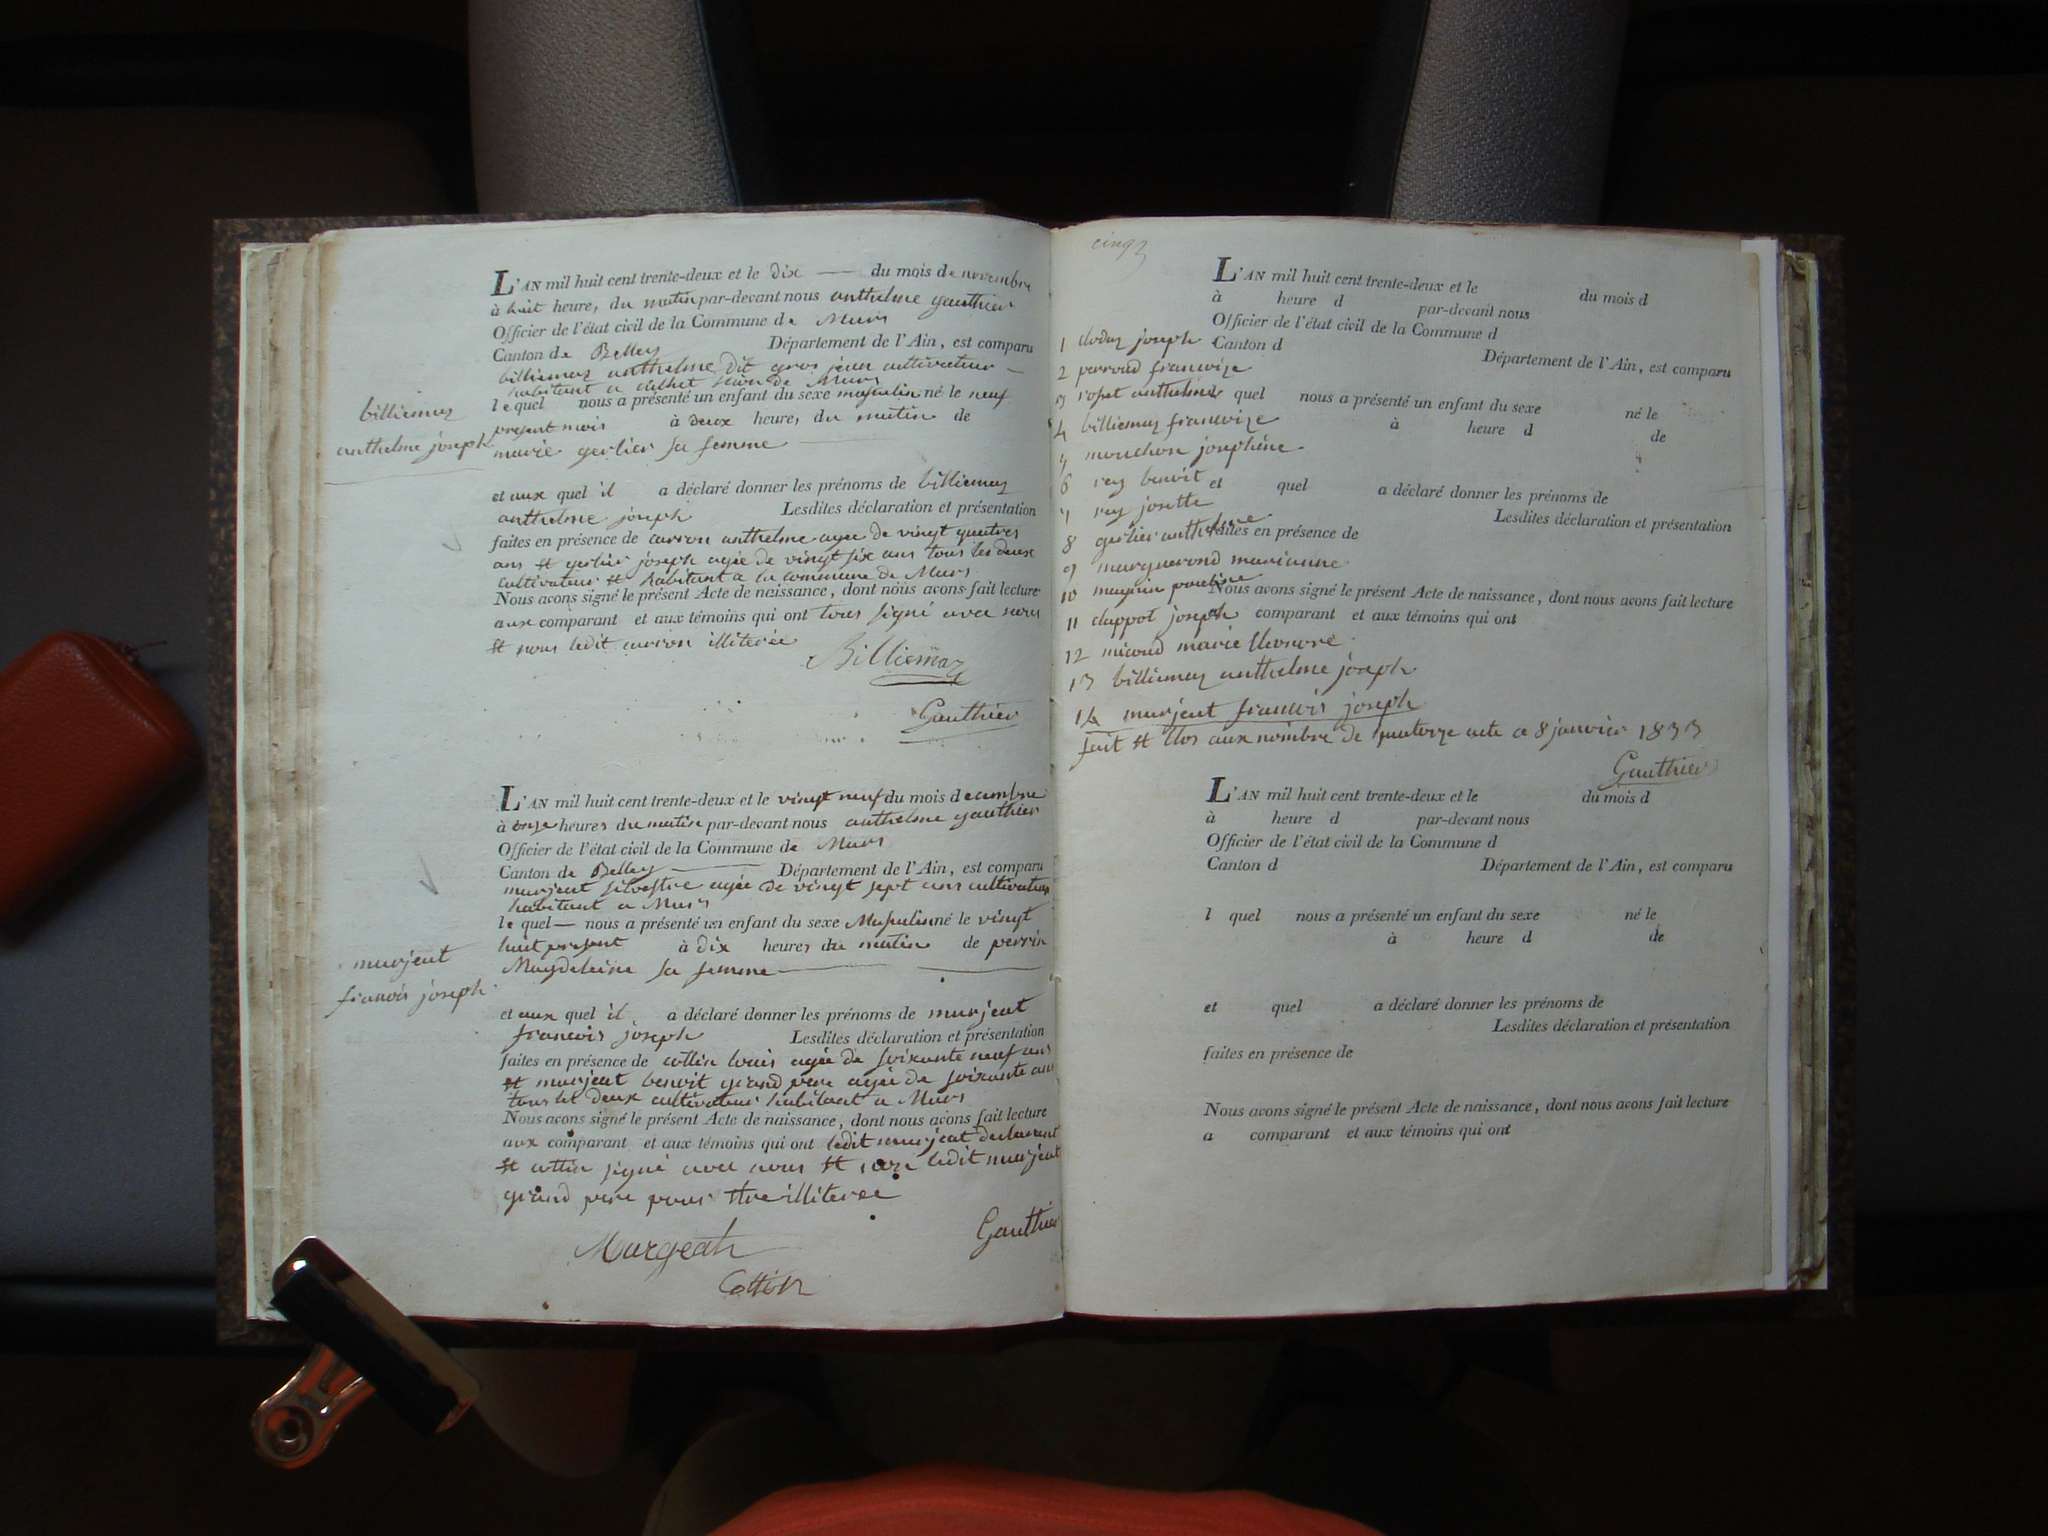 L'AN mil huit cent trente-deux et le dix — du mois de novembre
à huit heure, du matin par-devant nous anthelme gauthier
Officier de l'état civil de la Commune de Murs
Canton de Belley Département de l'Ain, est comparu
billiemaz anthelme dit gros jean cultivateur —
habitant a de Murs
lequel nous a présenté un enfant du sexe masculin né le neuf
present mois à deux heure, du matin de
marie gerlier sa femme —
billiemaz
anthelme joseph
et aux quel il a déclaré donner les prénoms de billiemaz
anthelme joseph Lesdites déclaration et présentation
faites en présence de carron anthelme agée de vingt quatres
ans et gerlier joseph agée de vingt six ans tous les deux
cultivateur et habitant a la commune de Murs
Nous avons signé le présent Acte de naissance, dont nous avons fait lecture
aux comparant et aux témoins qui ont tous signé avec nous
et nous ledit carron illiterée
Billiemaz
Gauthier
L'AN mil huit cent trente-deux et le vingt neuf du mois decembre
à onze heures du matin par-devant nous anthelme gauthier
Officier de l'état civil de la Commune de Murs
Canton de Belley — Département de l'Ain, est comparu
murjeat silvestre agée de vingt sept ans cultivateur
habitant a Murs
le quel — nous a présenté un enfant du sexe Masculin né le vingt
huit present à dix heures du matin de perrin
Magdeleine sa femme —
murjeat
francois joseph
et aux quel il a déclaré donner les prénoms de murjeat
francois joseph Lesdites déclaration et présentation
faites en présence de cottin louis agée de soixante neuf ans
et murjeat benoit grand pere agée de soixante ans
tous les deux cultivateur habitant a Murs
Nous avons signé le présent Acte de naissance, dont nous avons fait lecture
aux comparant et aux témoins qui ont ledit murjeat declarent
et cottin signé avec nous et non ledit murjeat
grand pere pour etre illiteree
Murgeat
Gauthier
Cottin
cinq
L'AN mil huit cent trente-deux et le du mois d
à heure d par-devant nous
Officier de l'état civil de la Commune d
Canton d Département de l'Ain, est comparu
1 joseph
2 perroud francoize
3 ropet anthelme
quel nous a présenté un enfant du sexe né le
4 billiemaz francoize
à heure d de
5 mouchon josephine
6 rey benoit
et quel a déclaré donner les prénoms de
7 rey josette
Lesdites déclaration et présentation
8 gerlier anthelme
faites en présence de
9 marguerond marianne
10 pauline
Nous avons signé le présent Acte de naissance, dont nous avons fait lecture
11 clappot joseph
comparant et aux témoins qui ont
12 micoud marie Eleonore
13 billiemaz anthelme joseph
14 murjeat francois joseph
fait et Clos aux nombre de quatorze acte ce 8 janvier 1833
Gauthier
L'AN mil huit cent trente-deux et le du mois d
à heure d par-devant nous
Officier de l'état civil de la Commune d
Canton d Département de l'Ain, est comparu
l quel nous a présenté un enfant du sexe né le
à heure d de
et quel a déclaré donner les prénoms de
Lesdites déclaration et présentation
faites en présence de
Nous avons signé le présent Acte de naissance, dont nous avons fait lecture
a comparant et aux témoins qui ont